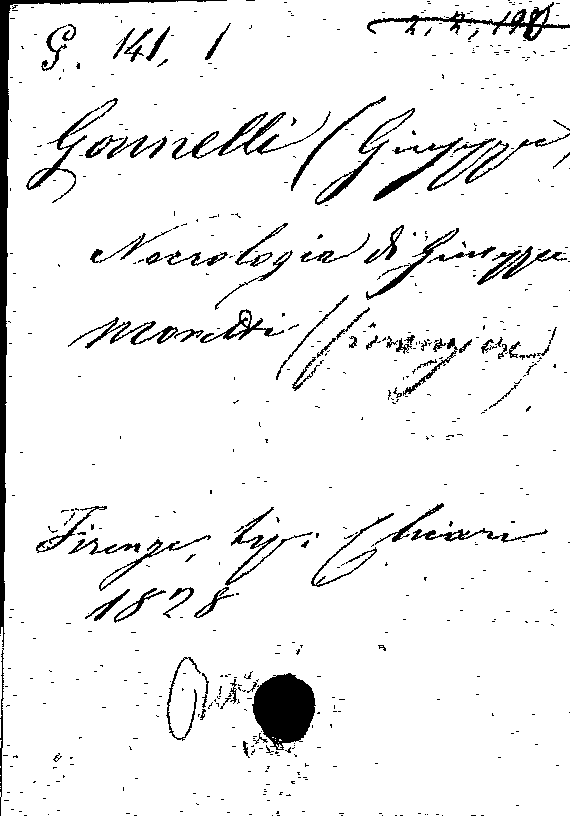 G. 141, 1
2, 2, 190
Gonnelli (Giuseppe)
Necrologia di Giuseppe
Moretti (
Firenze, tip: Chiari
1828